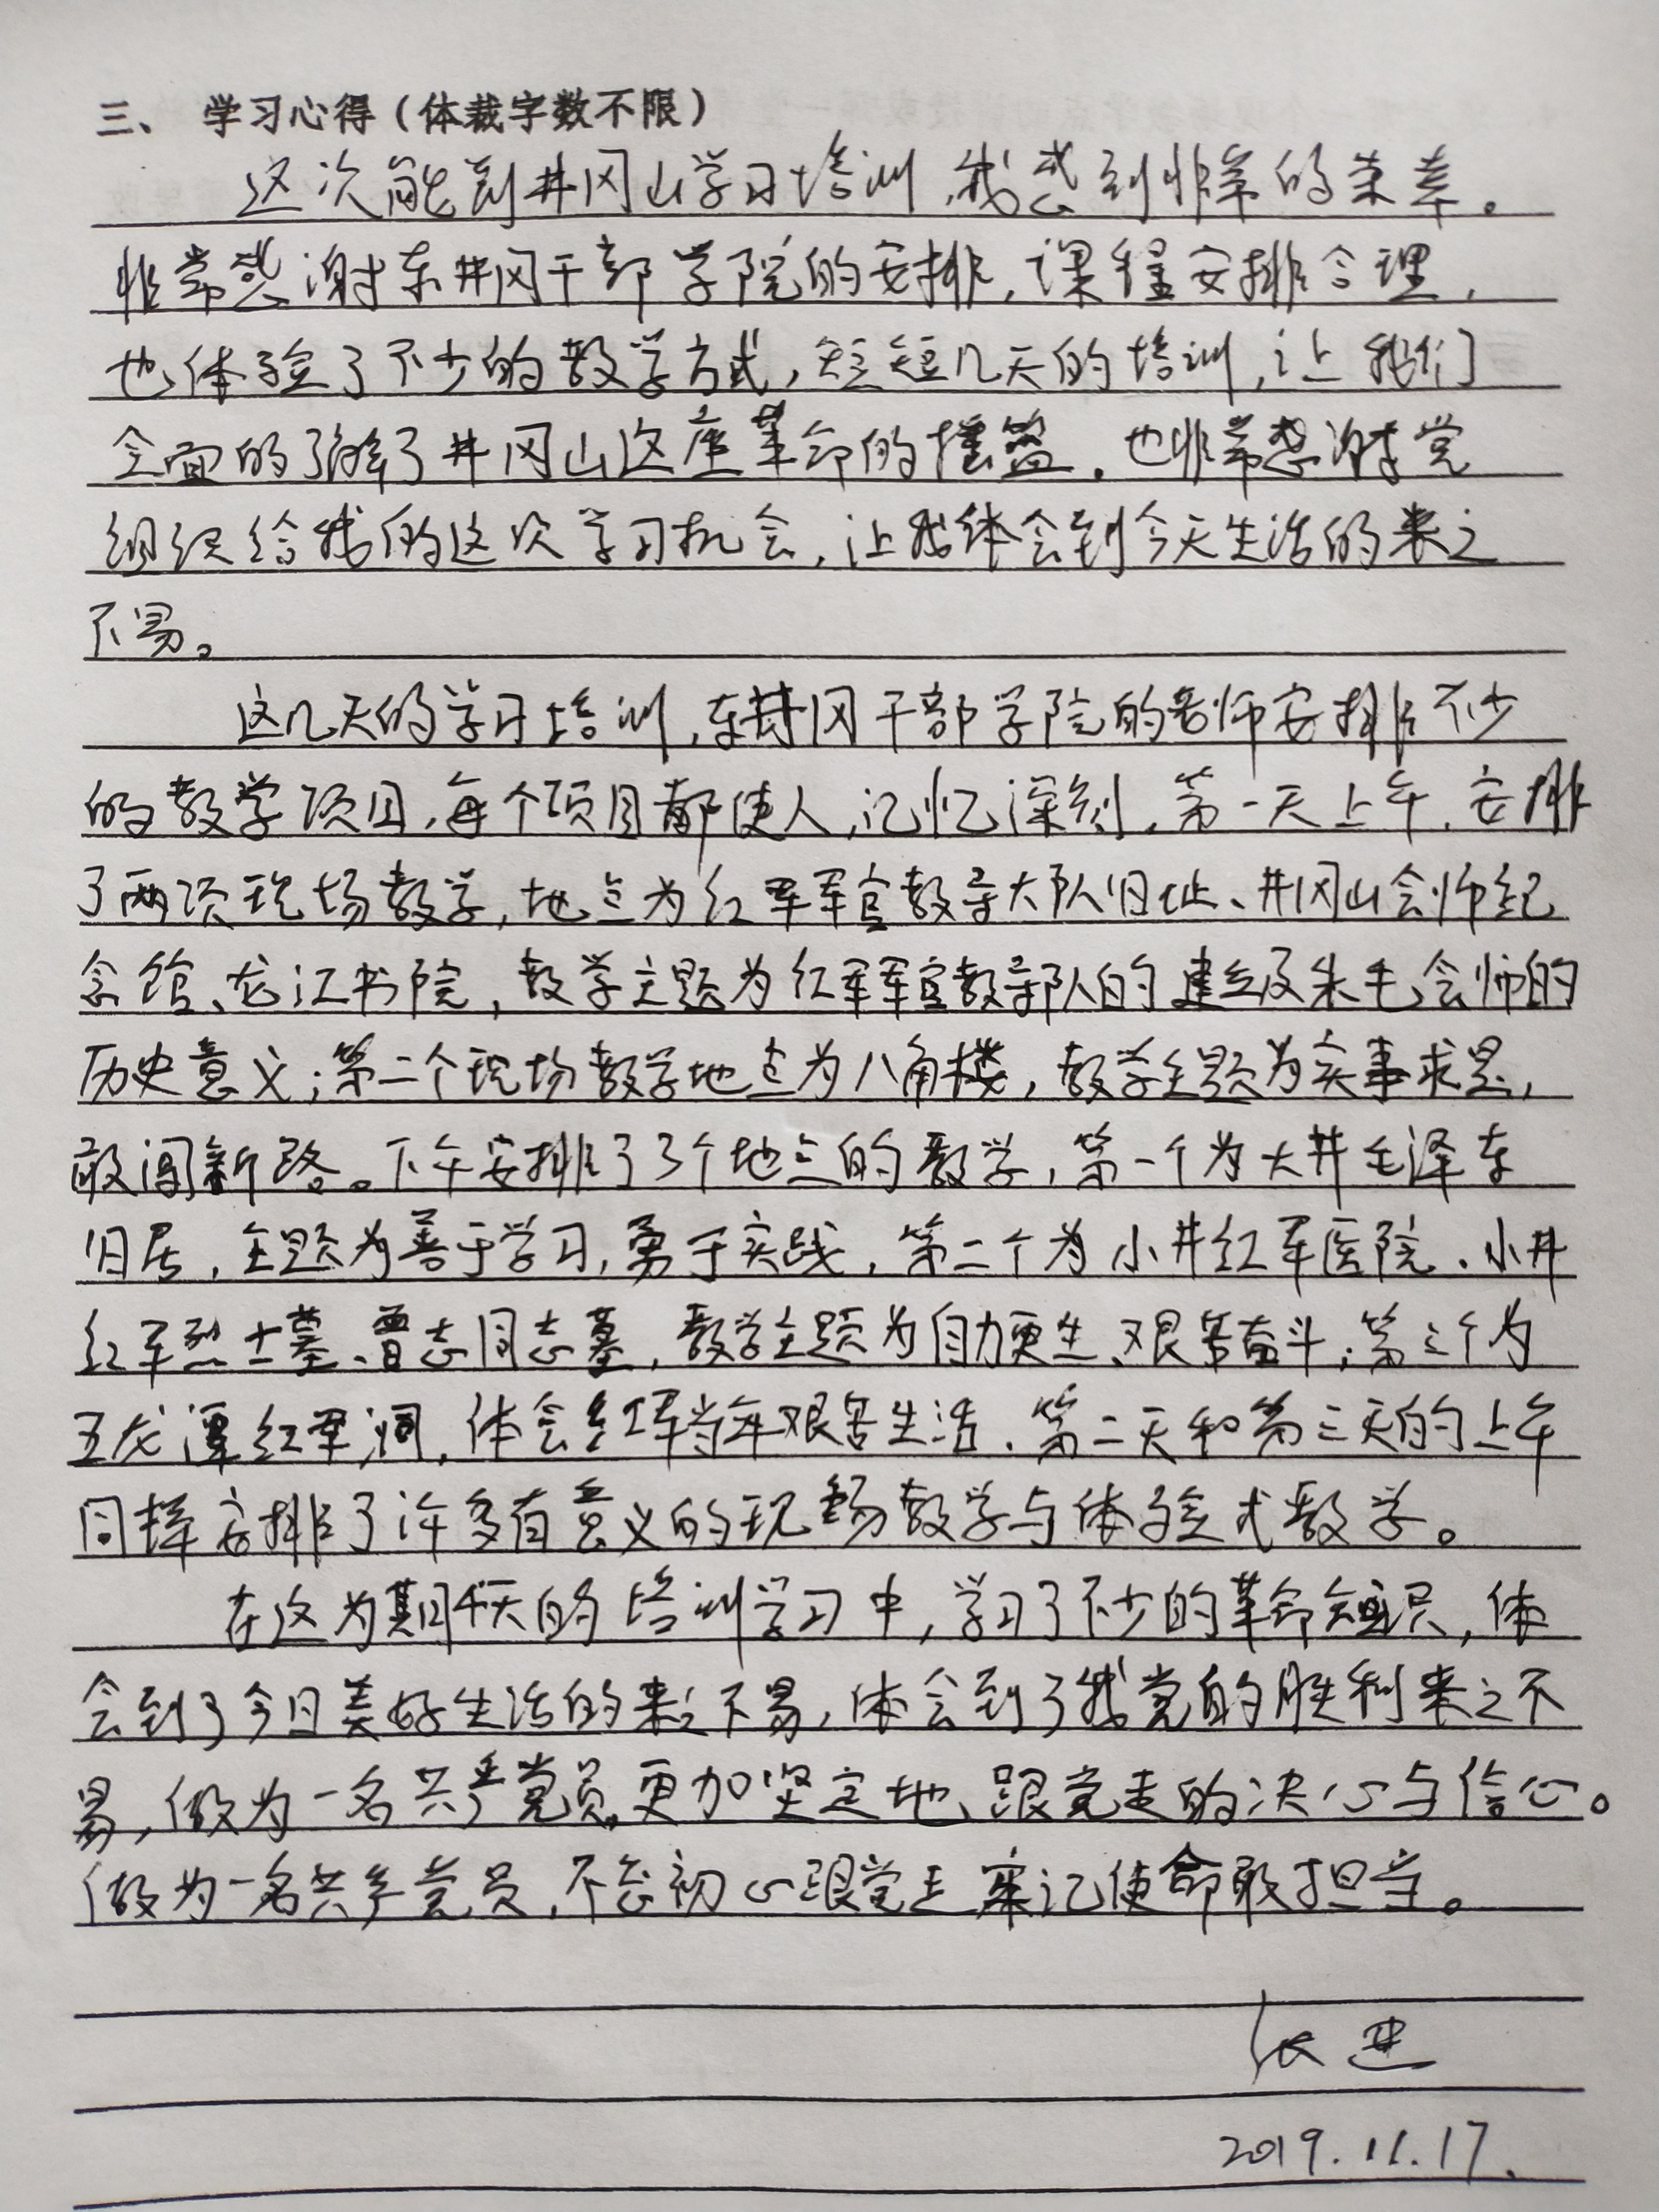 三、 学习心得（体裁字数不限）
这次能到井冈山学习培训，我感到非常的荣幸。
非常感谢东井冈干部学院的安排，课程安排合理，
也体验了不少的教学方式，短短几天的培训，让我们
全面的了解了井冈山这座革命的摇篮。也非常感谢党
组织给我的这次学习机会，让我体会到今天生活的来之
不易。
这几天的学习培训，东井冈干部学院的老师安排不少
的教学项目，每个项目都使人记忆深刻。第一天上午，安排
了两项现场教学，地点为红军军官教导大队旧址、井冈山会师纪
念馆、龙江书院，教学主题为红军军官教导队的建立及朱毛会师的
历史意义；第二个现场教学地点为八角楼，教学主题为实事求是，
敢闯新路。下午安排了3个地点的教学，第一个为大井毛泽东
旧居，主题为善于学习，勇于实践，第二个为小井红军医院、小井
红军烈士墓、曾志同志墓，教学主题为自力更生、艰苦奋斗；第三个为
五龙潭红军洞，体会红军当年艰苦生活。第二天和第三天的上午
同样安排了许多有意义的现场教学与体验式教学。
在这为期4天的培训学习中，学习了不少的革命知识，体
会到了今日美好生活的来之不易，体会到了我党的胜利来之不
易，做为一名共产党员，更加坚定地跟党走的决心与信心。
做为一名共产党员，不忘初心跟党走 牢记使命敢担当。
张进
2019.11.17.